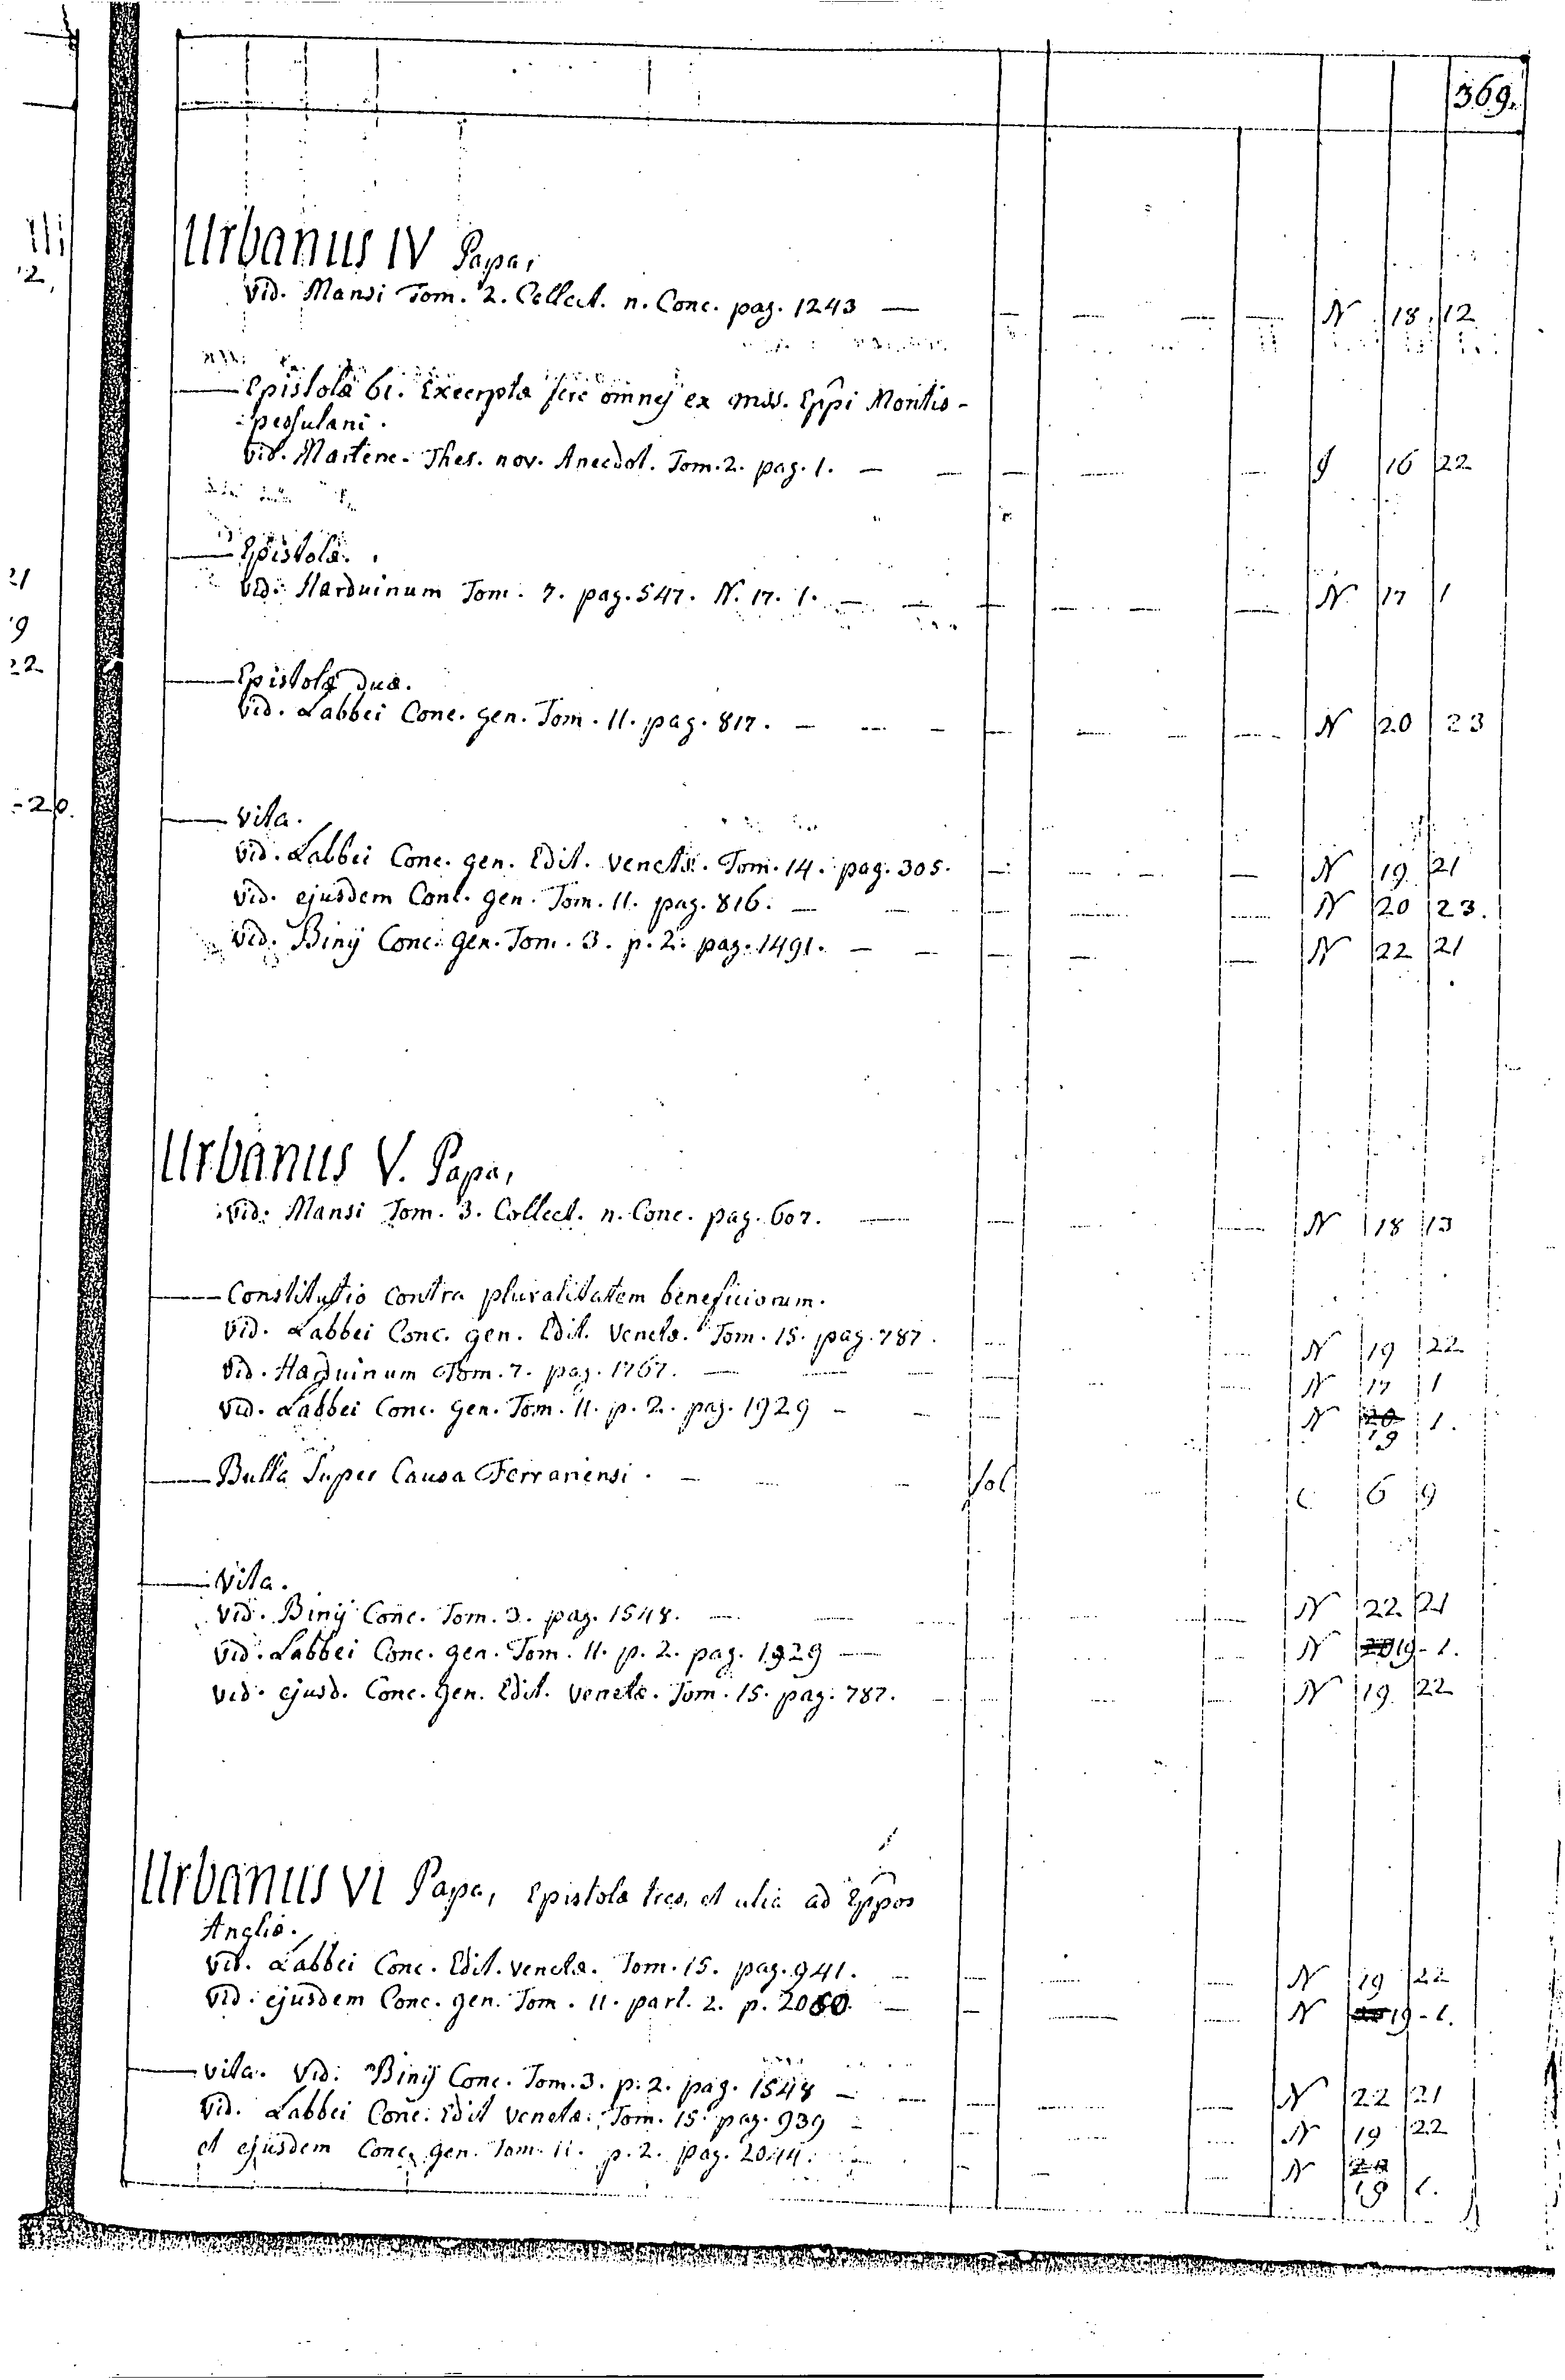 369.
Urbanus IV Papa,
Vid. Mansi Tom. 2. Collect. n. Conc. pag. 1243 — N 18 12
— Epistolæ 61. Excerptæ fere omnes ex mss. Eppi Montis-
-pessulani.
Vid. Martene. Thes. nov. Anecdot. Tom. 2. pag. 1. — 16 22
— Epistolæ.
Vid. Harduinum Tom. 7. pag. 547. N. 17. 1. — N 17 1
— Epistolæ duæ.
Vid. Labbei Conc. gen. Tom. 11. pag. 817. — N 20 23
— Vita.
Vid. Labbei Conc. gen. Edit. Venetæ. Tom. 14. pag. 305. — N 19 21
Vid. ejusdem Conc. gen. Tom. 11. pag. 816. — N 20 23.
Vid. Binij Conc. gen. Tom. 3. p. 2. pag. 1491. — N 22 21
Urbanus V. Papa,
Vid. Mansi Tom. 3. Collect. n. Conc. pag. 607. — N 18 13
— Constitutio contra pluralitatem beneficiorum.
Vid. Labbei Conc. gen. Edit. Venetæ. Tom. 15. pag. 787. N 19 22
Vid. Harduinum Tom. 7. pag. 1767. — N 17 1
Vid. Labbei Conc. gen. Tom. 11. p. 2. pag. 1929 — N 20 19 1.
— Bulla Super Causa Ferrariensi. — fol C 6 9
— Vita.
Vid. Binij Conc. Tom. 3. pag. 1548. — N 22 21
Vid. Labbei Conc. gen. Tom. 11. p. 2. pag. 1929 — N 20 19 - 1.
Vid. ejusd. Conc. gen. Edit. Venetæ. Tom. 15. pag. 787. N 19 22
Urbanus VI Papa, Epistolæ tres, et alia ad Eppos
Angliæ.
Vid. Labbei Conc. Edit. Venetæ. Tom. 15. pag. 941. — N 19 22
Vid. ejusdem Conc. gen. Tom. 11. part. 2. p. 2050. — N 19 - 1.
— Vita. Vid. Binij Conc. Tom. 3. p. 2. pag. 1548 — N 22 21
Vid. Labbei Conc. Edit Venetæ. Tom. 15. pag. 939 — N 19 22
et ejusdem Conc. gen. Tom. 11. p. 2. pag. 2044. — N 20 19 1.